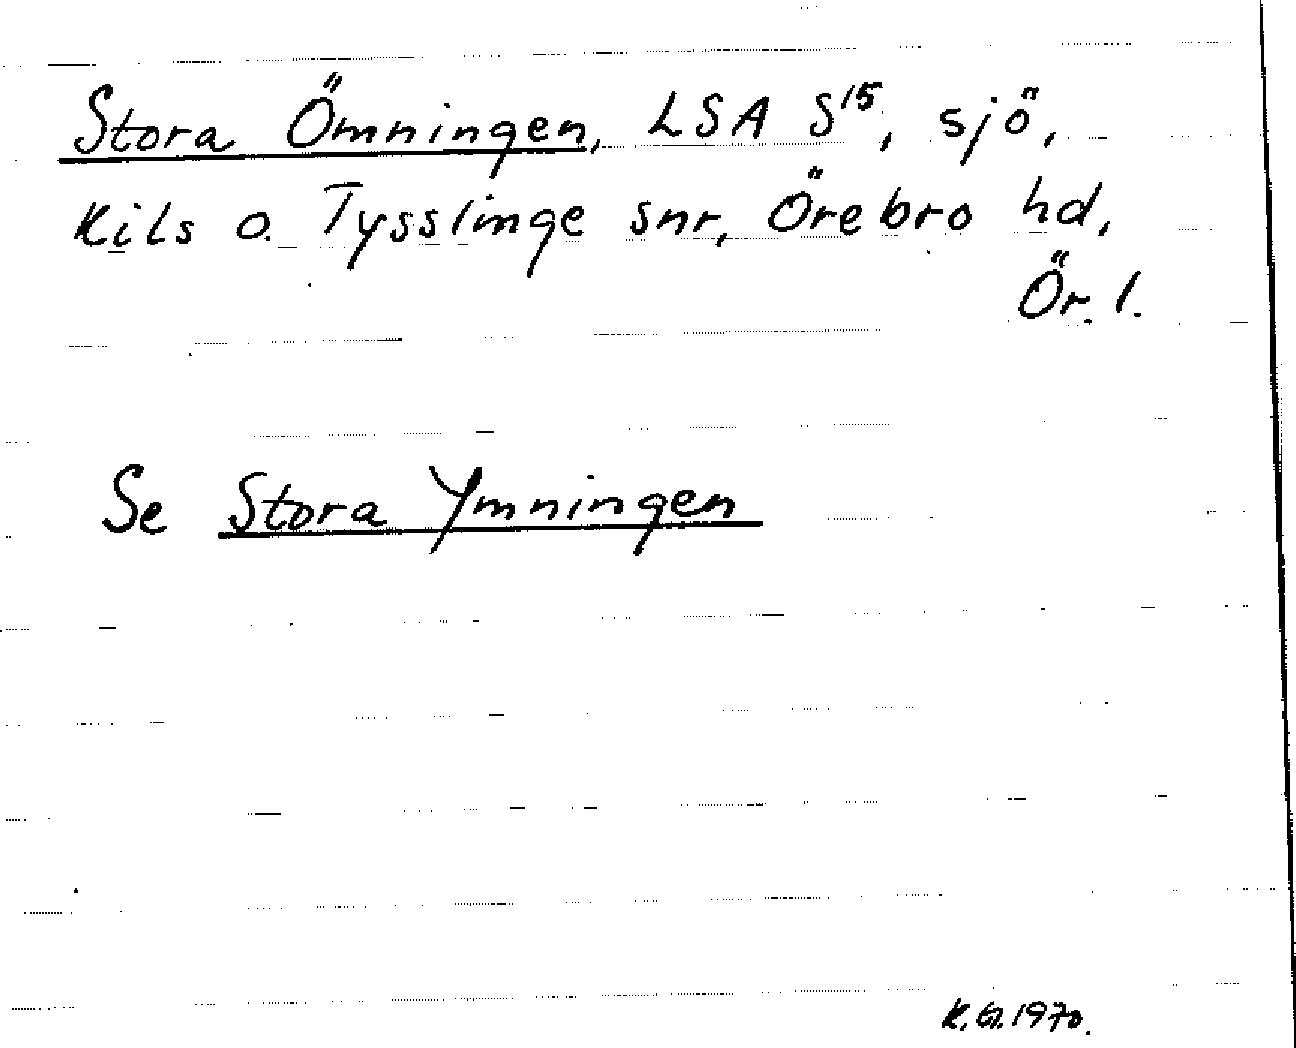 Stora Ömningen, LSA S15, sjö,
Kils o. Tysslinge snr, Örebro hd,
Ör. l.
Se Stora Ymningen
K. G. 1970.